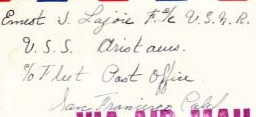 Ernest J. Lajoie F.1/c U.S.N.R.
U.S.S. Aristaeus.
c/o Fleet Post Office
San Francisco Calif
VIA AIR MAIL